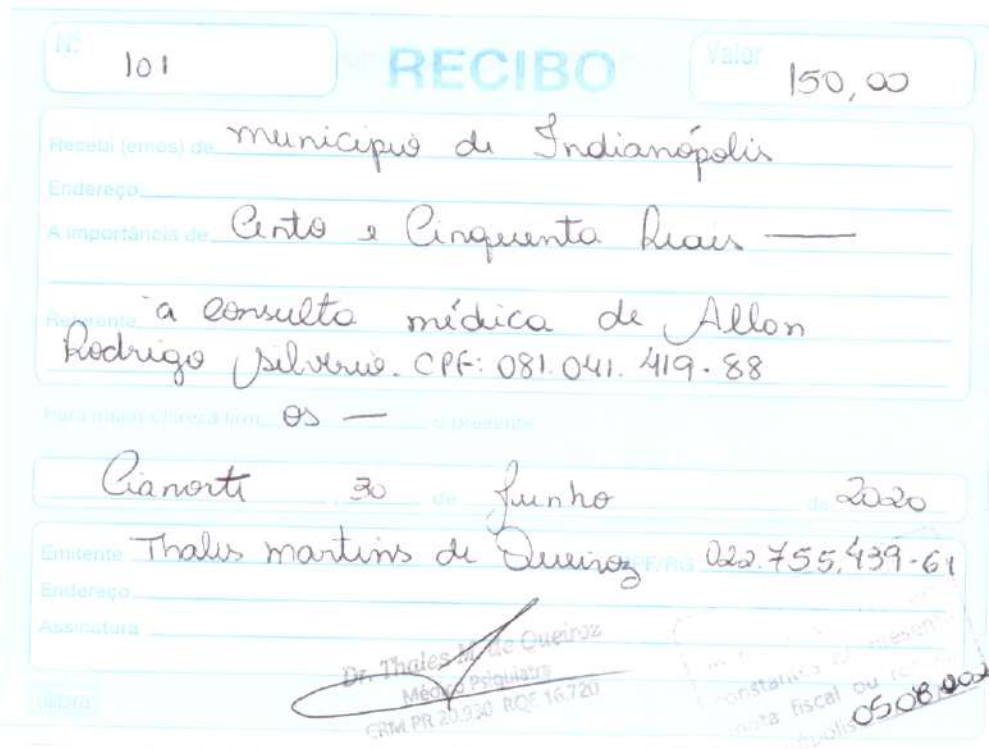 Nº 101 RECIBO Valor 150,00
Recebi (emos) de município de Indianópolis
Endereço
A importância de Cento e Cinquenta Reais —
Referente a consulta médica de Allon
Rodrigo Silverio. CPF: 081.041.419-88
Para maior clareza firm os — o presente
Cianorte, 30 de Junho de 2020
Emitente Thales martins de Queiroz CPF/RG 022.755.439-61
Endereço
Assinatura
Dr. Thales M. de Queiroz
Médico Psiquiatra
CRM PR 20.930 RQE 16.720
constantes
nota fiscal ou
05.08.202